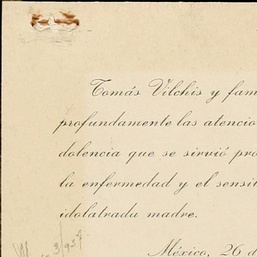 Tomás Vilchis y fam
profundamente las atencio
dolencia que se sirvió pro
la enfermedad y el sensi
idolatrada madre.
México, 26 d